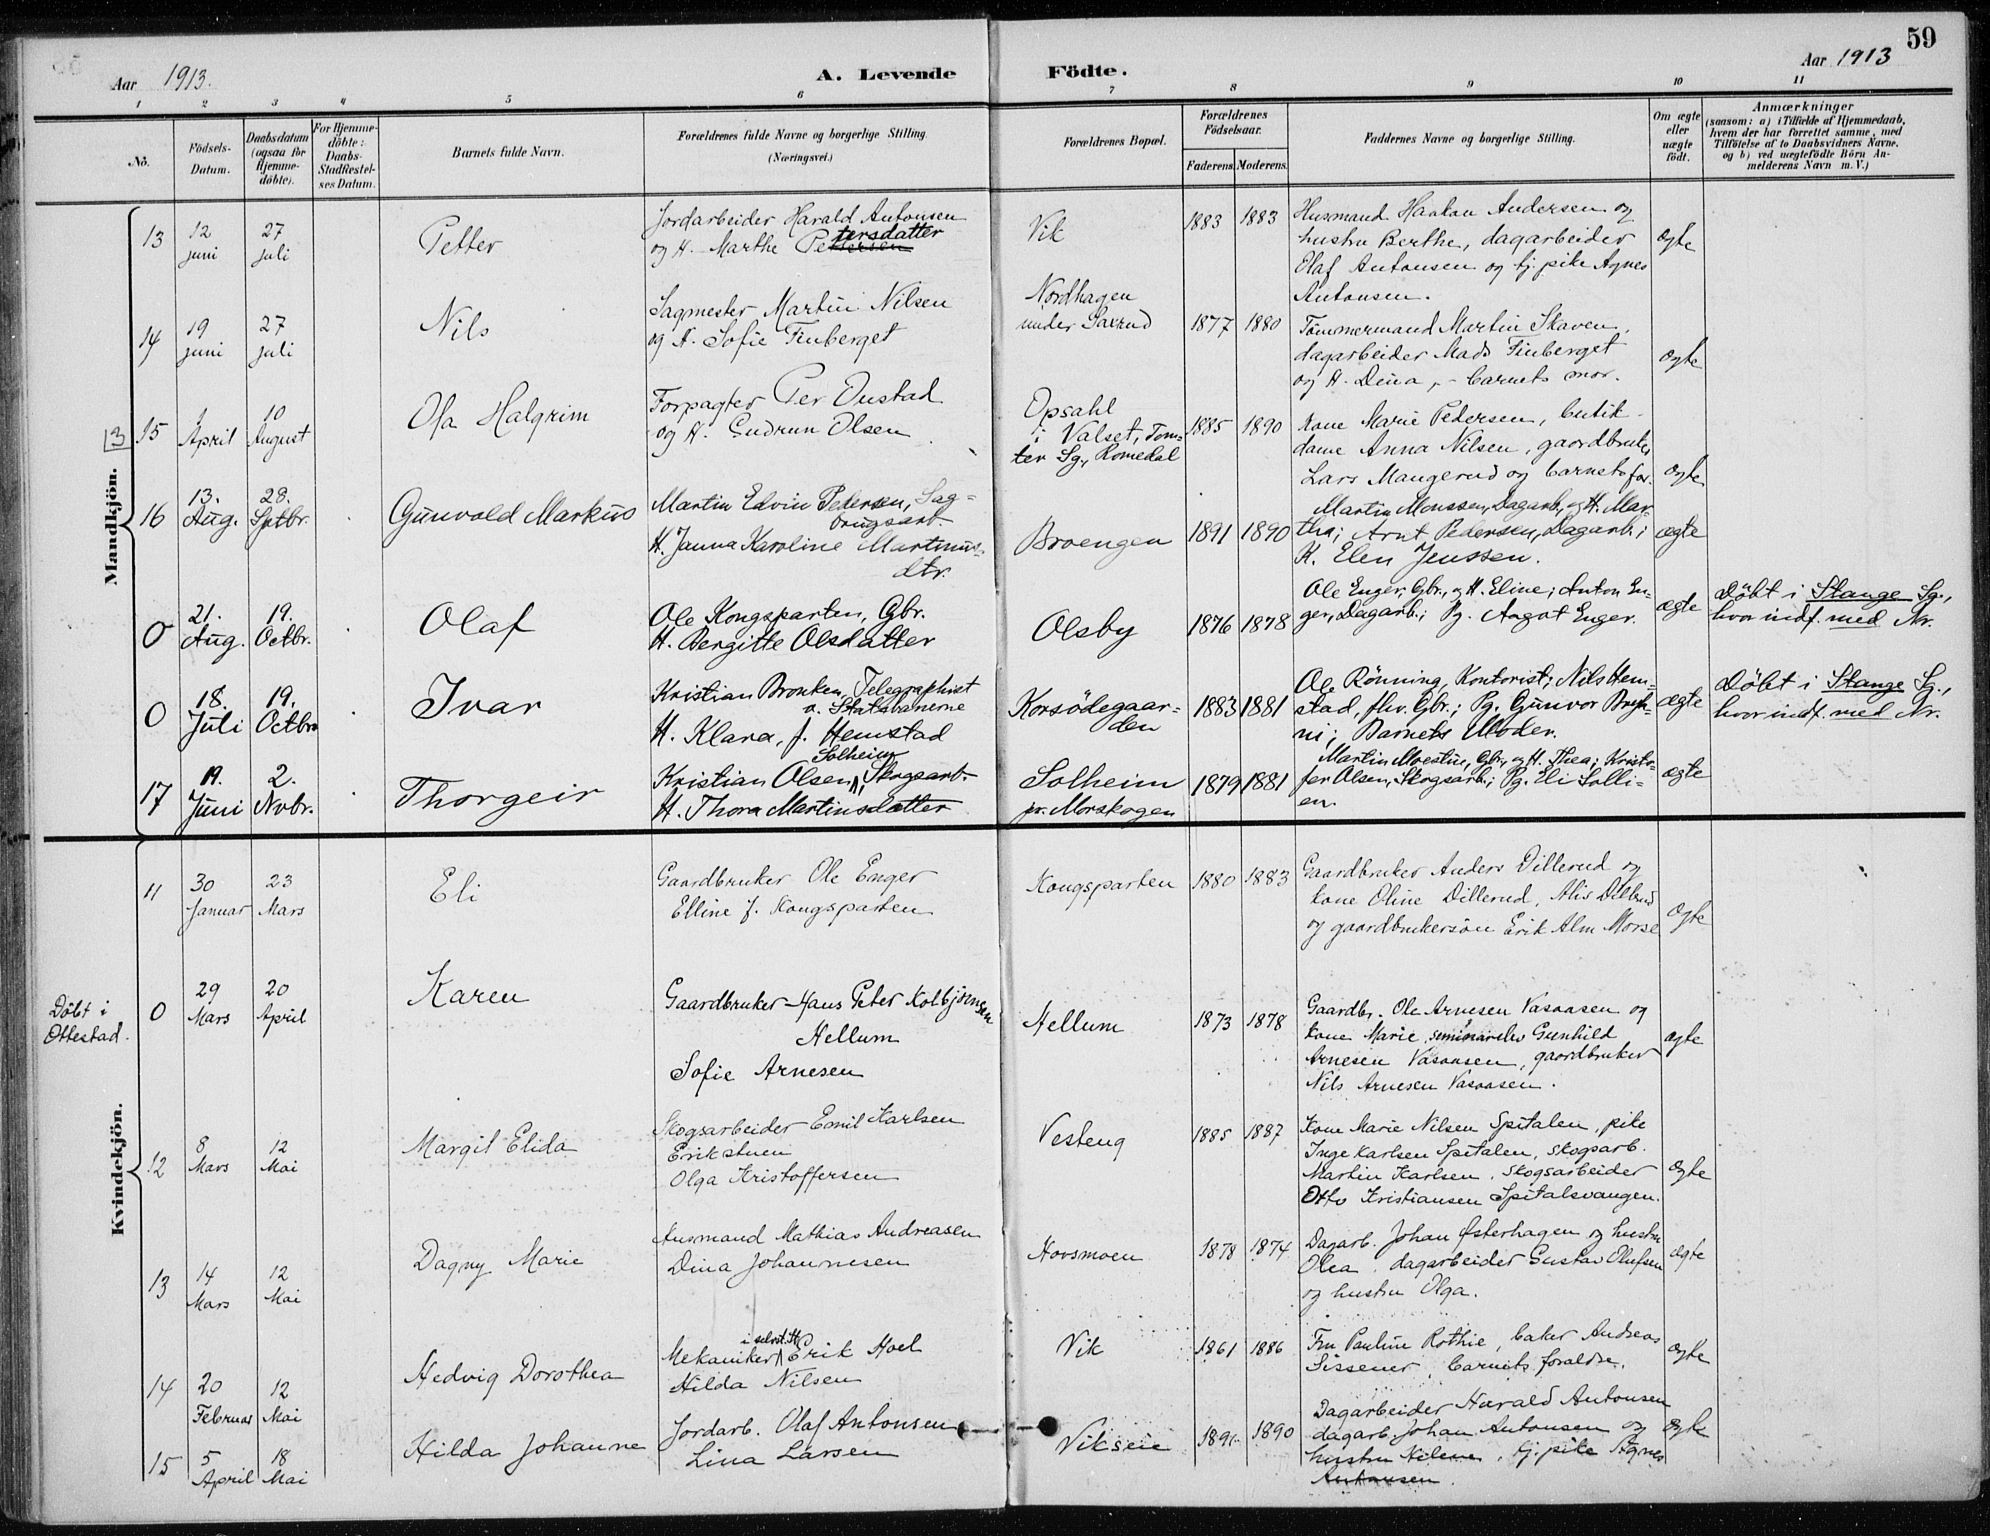 59
Aar 1913. A. Levende Födte. Aar 1913
1 2 3 4 5 6 7 8 9 10 11
No.
Födsels-Datum.
Daabsdatum (ogsaa for Hjemme-döbte).
For Hjemme-döbte: Daabs-Stadfæstel-ses Datum.
Barnets fulde Navn.
Forældrenes fulde Navne og borgerlige Stilling. (Næringsvei.)
Forældrenes Bopæl.
Forældrenes Födselsaar.
Faderens. Moderens.
Faddernes Navne og borgerlige Stilling.
Om ægte eller uægte födt.
Anmærkninger
(saasom: a) i Tilfælde af Hjemmedaab,
hvem der har forrettet samme, med
Tilföielse af to Daabsvidners Navne,
og b) ved uægtefödte Börn An-
melderens Navn m. V.)
Mandkjön.
3
13
12 juni
27 juli
Petter
Jordarbeider Harald Antonsen
og H. Marthe Pettersen
tersdatter
Vik
1883 1883
Husmand Haakon Andersen og
hustru Berthe, dagarbeider
Olaf Antonsen og tj. pike Agnes
Antonsen.
ægte
14
19 juni
27 juli
Nils
Sagmester Martin Nilsen
og H. Sofie Finberget
Nordhagen
under Saxrud
1877 1880
Tömmermand Martin Skaven,
dagarbeider Mads Finberget
og H. Dina, - barnets mor.
ægte
15
April
10 August
Ola Halgrim
Forpagter Per Onstad
og H. Gudrun Olsen
Opsahl
i Valset, Tom-
ter Sg., Romedal
1885 1890
Kone Marie Pedersen, butik-
dame Anna Nilsen, gaardbruker
Lars Mangerud og barnets far.
ægte
16
13. Aug.
28. Sptbr.
Gunvald Markus
Martin Edvin Pedersen, Sag-
brugsarb.
H. Janna Karoline Martinus-
dtr.
Broengen
1891 1890
Martin Monssen, Dagarb., og H. Mar-
tha; Arnt Pedersen, Dagarb.;
K. Elen Jenssen.
ægte
0
21. Aug.
19. Octbr.
Olaf
Ole Kongsparten, Gbr.
H. Bergitte Olsdatter
Olsby
1876 1878
Ole Enger, Gbr., og H. Eline; Anton En-
ger, Dagarb.; Pg. Aagot Enger.
ægte
Döbt i Stange Sg.,
hvor indf. med Nr.
0
18. Juli
19. Octbr.
Ivar
Kristian Bronken, Telegraphist
v. Statsbanerne
H. Klara, f. Hemstad
Korsödegaar-
den
1883 1881
Ole Rönning, Kontorist; Nils Hem-
stad, fhv. Gbr.; Pg. Gunvor Bryh-
ni; Barnets Moder.
ægte
Döbt i Stange Sg.,
hvor indf. med Nr.
17
19. Juni
2. Novbr.
Thorgeir
Solheim
Kristian Olsen, Skogsarb.
H. Thora Martinsdatter
Solheim
pr. Morskogen
1879 1881
Martin Moestue, Gbr., og H. Thea; Kristo-
fer Olsen, Skogsarb.; Pg. Eli Solli-
en.
ægte
Kvindekjön.
11
30 Januar
23 Mars
Eli
Gaardbruker Ole Enger
Elline f. Kongsparten
Kongsparten
1880 1883
Gaardbruker Anders Dillerud og
kone Oline Dillerud, Alis Dillerud
og gaardbrukersön Erik Alm Morse
ægte
Döbt i
Ottestad.
0
29 Mars
20 April
Karen
Gaardbruker Hans Peter Kolbjörnsen
Hellum
Sofie Arnesen
Hellum
1873 1878
Gaardbr. Ole Arnesen Vasaasen og
kone Marie, seminarelev Gunhild
Arnesen Vasaasen, gaardbruker
Nils Arnesen Vasaasen.
ægte
12
8 Mars
12 Mai
Margit Elida
Skogsarbeider Emil Karlsen
Erikstuen
Olga Kristoffersen
Vesteng
1885 1887
Kone Marie Nilsen Spitalen, pike
Inge Karlsen Spitalen, skogsarb.
Martin Karlsen, skogsarbeider
Otto Kristiansen Spitalsvangen.
ægte
13
14 Mars
12 Mai
Dagny Marie
Husmand Mathias Andreasen
Dina Johannesen
Hovsmoen
1878 1874
Dagarb. Johan Østerhagen og hustru
Olea, dagarbeider Gustav Olufsen
og hustru Olga.
ægte
14
20 Februar
12 Mai
Hedvig Dorothea
i selvst. St.
Mekaniker Erik Hoel
Hilda Nilsen
Vik
1861 1886
Fru Pauline Rothie, baker Andreas
Sissener, barnets foraldre.
ægte
15
5 April
18 Mai
Hilda Johanne
Jordarb. Olaf Antonsen
Lina Larsen
Vikseie
1891 1890
Dagarbeider Harald Antonsen
dagarb. Johan Antonsen og
hustru Helene, tj. pike Agnes
Antonsen.
ægte